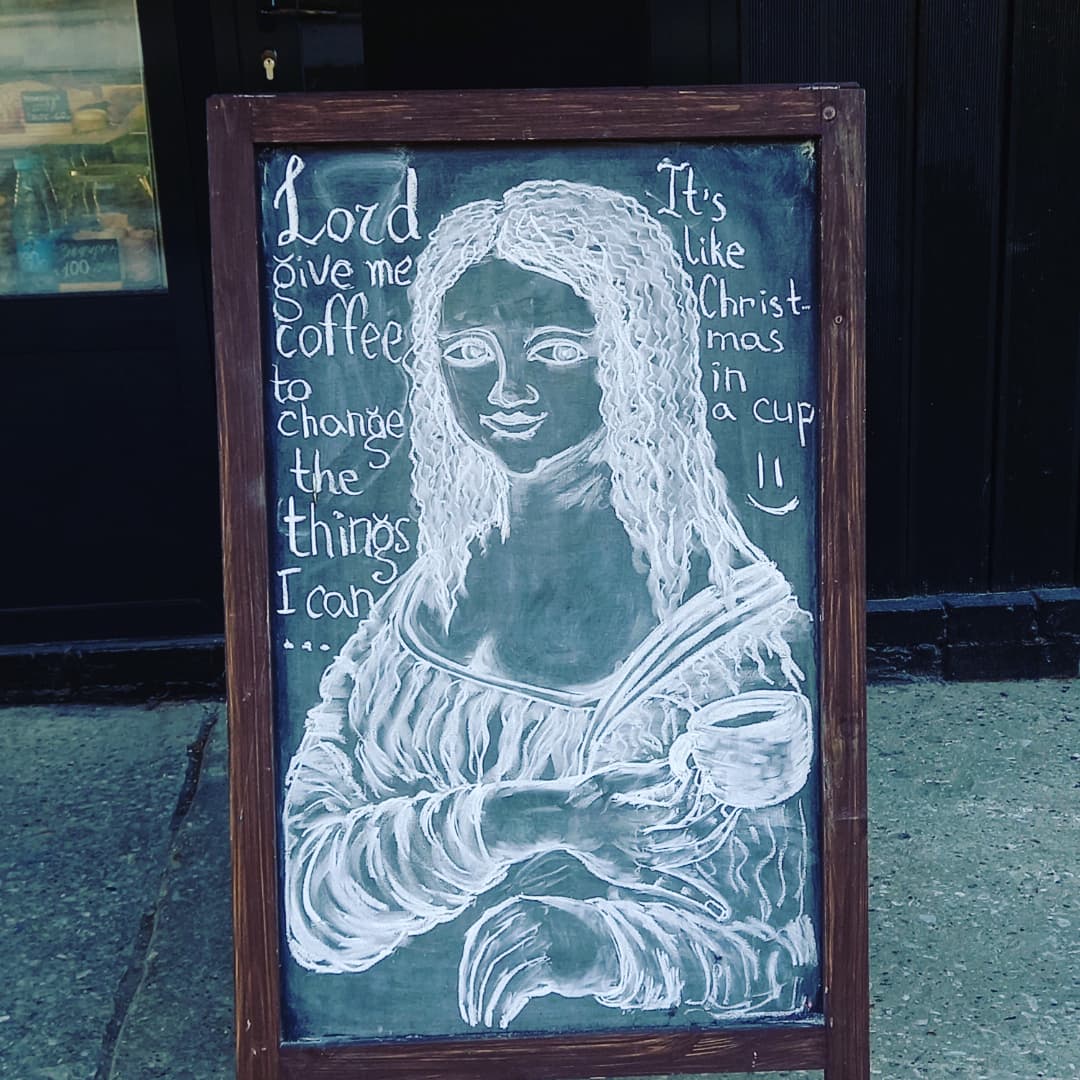 Lord
give me
coffee
to
change
the
things
I can
....
It's
like
Christ-
mas
in
a cup
100